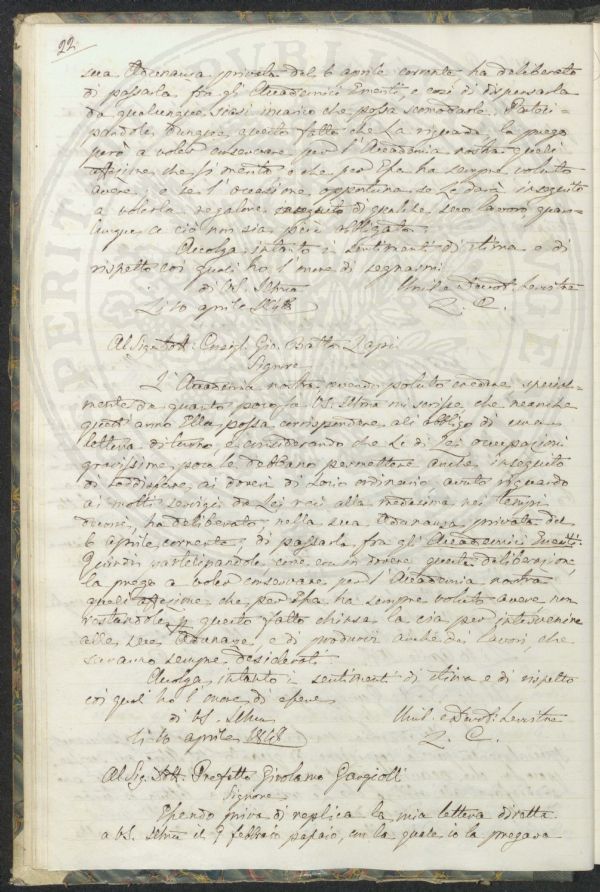 22.
sua Adunanza privata del 6 aprile corrente ha deliberato
di passarla fra gli Accademici Emeriti e così di dispensarla
da qualunque siasi incarico che possa scomodarla. Parteci-
pandole, dunque, questo fatto che La riguarda, la prego
però a voler conservare per l'Accademia nostra quell'
affezione che si meritò e che per Essa ha sempre voluto
avere, e se l'occasione opportuna se Le darà in seguito
a volerla regalare di qualche suo lavoro quan-
tunque a ciò non sia però obbligato.
Accolga intanto i sentimenti di stima e di
rispetto coi quali ho l'onore di segnarmi
di VS. Illma
Li 10 aprile 1848
Umil. e Devot. Servitre
L. C.
Al Sig. Dott. Consigl. Gio. Batta
Signore
L'Accademia nostra avendo potuto vedere special-
mente da quanto poco fa VS. Illma mi scrisse, che neanche
quest'anno Ella possa corrispondere all'obbligo di una
lettura di turno, e considerando che le di Lei occupazioni
gravissime, poco le debbano permettere anche in seguito
di soddisfare ai doveri di Socio ordinario, avuto riguardo
ai molti servigi da Lei resi alla medesima nei tempi
decorsi, ha deliberato nella sua Adunanza privata del
6 aprile corrente, di passarla fra gli Accademici Emeriti.
Quindi partecipandole come era in dovere questa deliberazione,
la prego a voler conservare per l'Accademia nostra
quell'affezione che per Essa ha sempre voluto avere non
restandole per questo fatto chiusa la via per intervenire
alle sue Adunanze, e di produrvi anche dei lavori, che
saranno sempre desiderati.
Accolga intanto i sentimenti di stima e di rispetto
coi quali ho l'onore di essere
di VS. Illma
Li 10 aprile 1848
Umil. e Devot. Servitre
L. C.
Al Sig. Dott. Prefetto Girolamo Gargiolli
Signore
Essendo priva di replica la mia lettera diretta
a VS. Illma il 9 febbraio passato, con la quale io la pregava